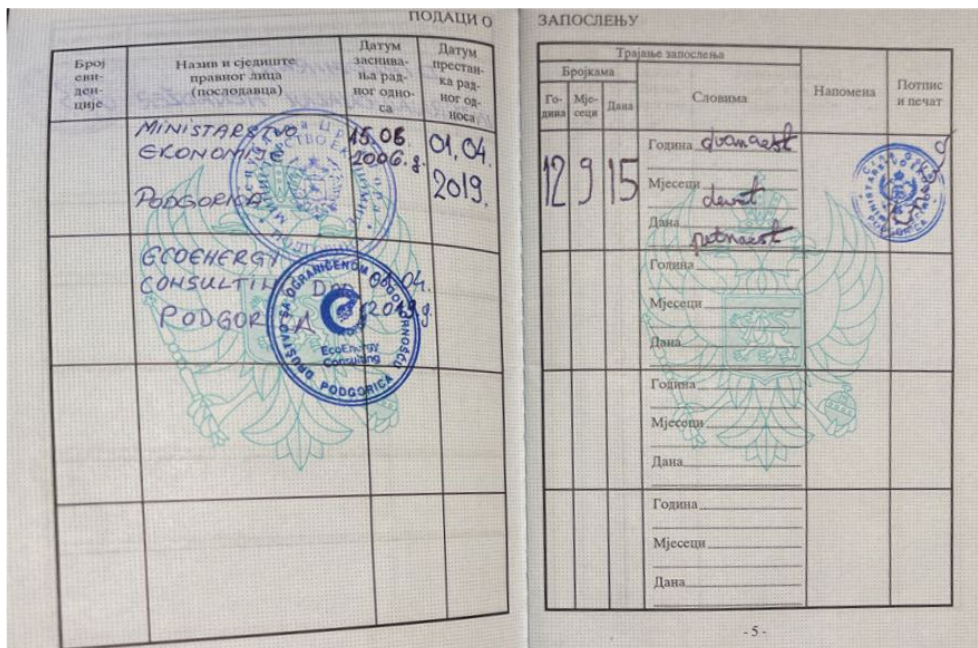 ПОДАЦИ О
Број
еви-
ден-
ције
Назив и сједиште
правног лица
(послодавца)
Датум
заснива-
ња рад-
ног одно-
са
Датум
престан-
ка рад-
ног од-
носа
MINISTARSTVO
EKONOMIJE
PODGORICA
15.06.
2006.g.
01.04.
2019.
ECOENERGY
CONSULTING DOO
PODGORICA
01.04.
2019.g.
ДРUŠTVO SA OGRANIČENOM ODGOVORNOŠĆU
EcoEnergy
Consulting
PODGORICA
ЗАПОСЛЕЊУ
Трајање запослења
Бројкама
Го-
дина
Мје-
сеци
Дана
Словима
Напомена
Потпис
и печат
12 9 15
Година dvanaest
Мјесеци devet
Дана petnaest
Година
Мјесеци
Дана
Година
Мјесеци
Дана
Година
Мјесеци
Дана
- 5 -